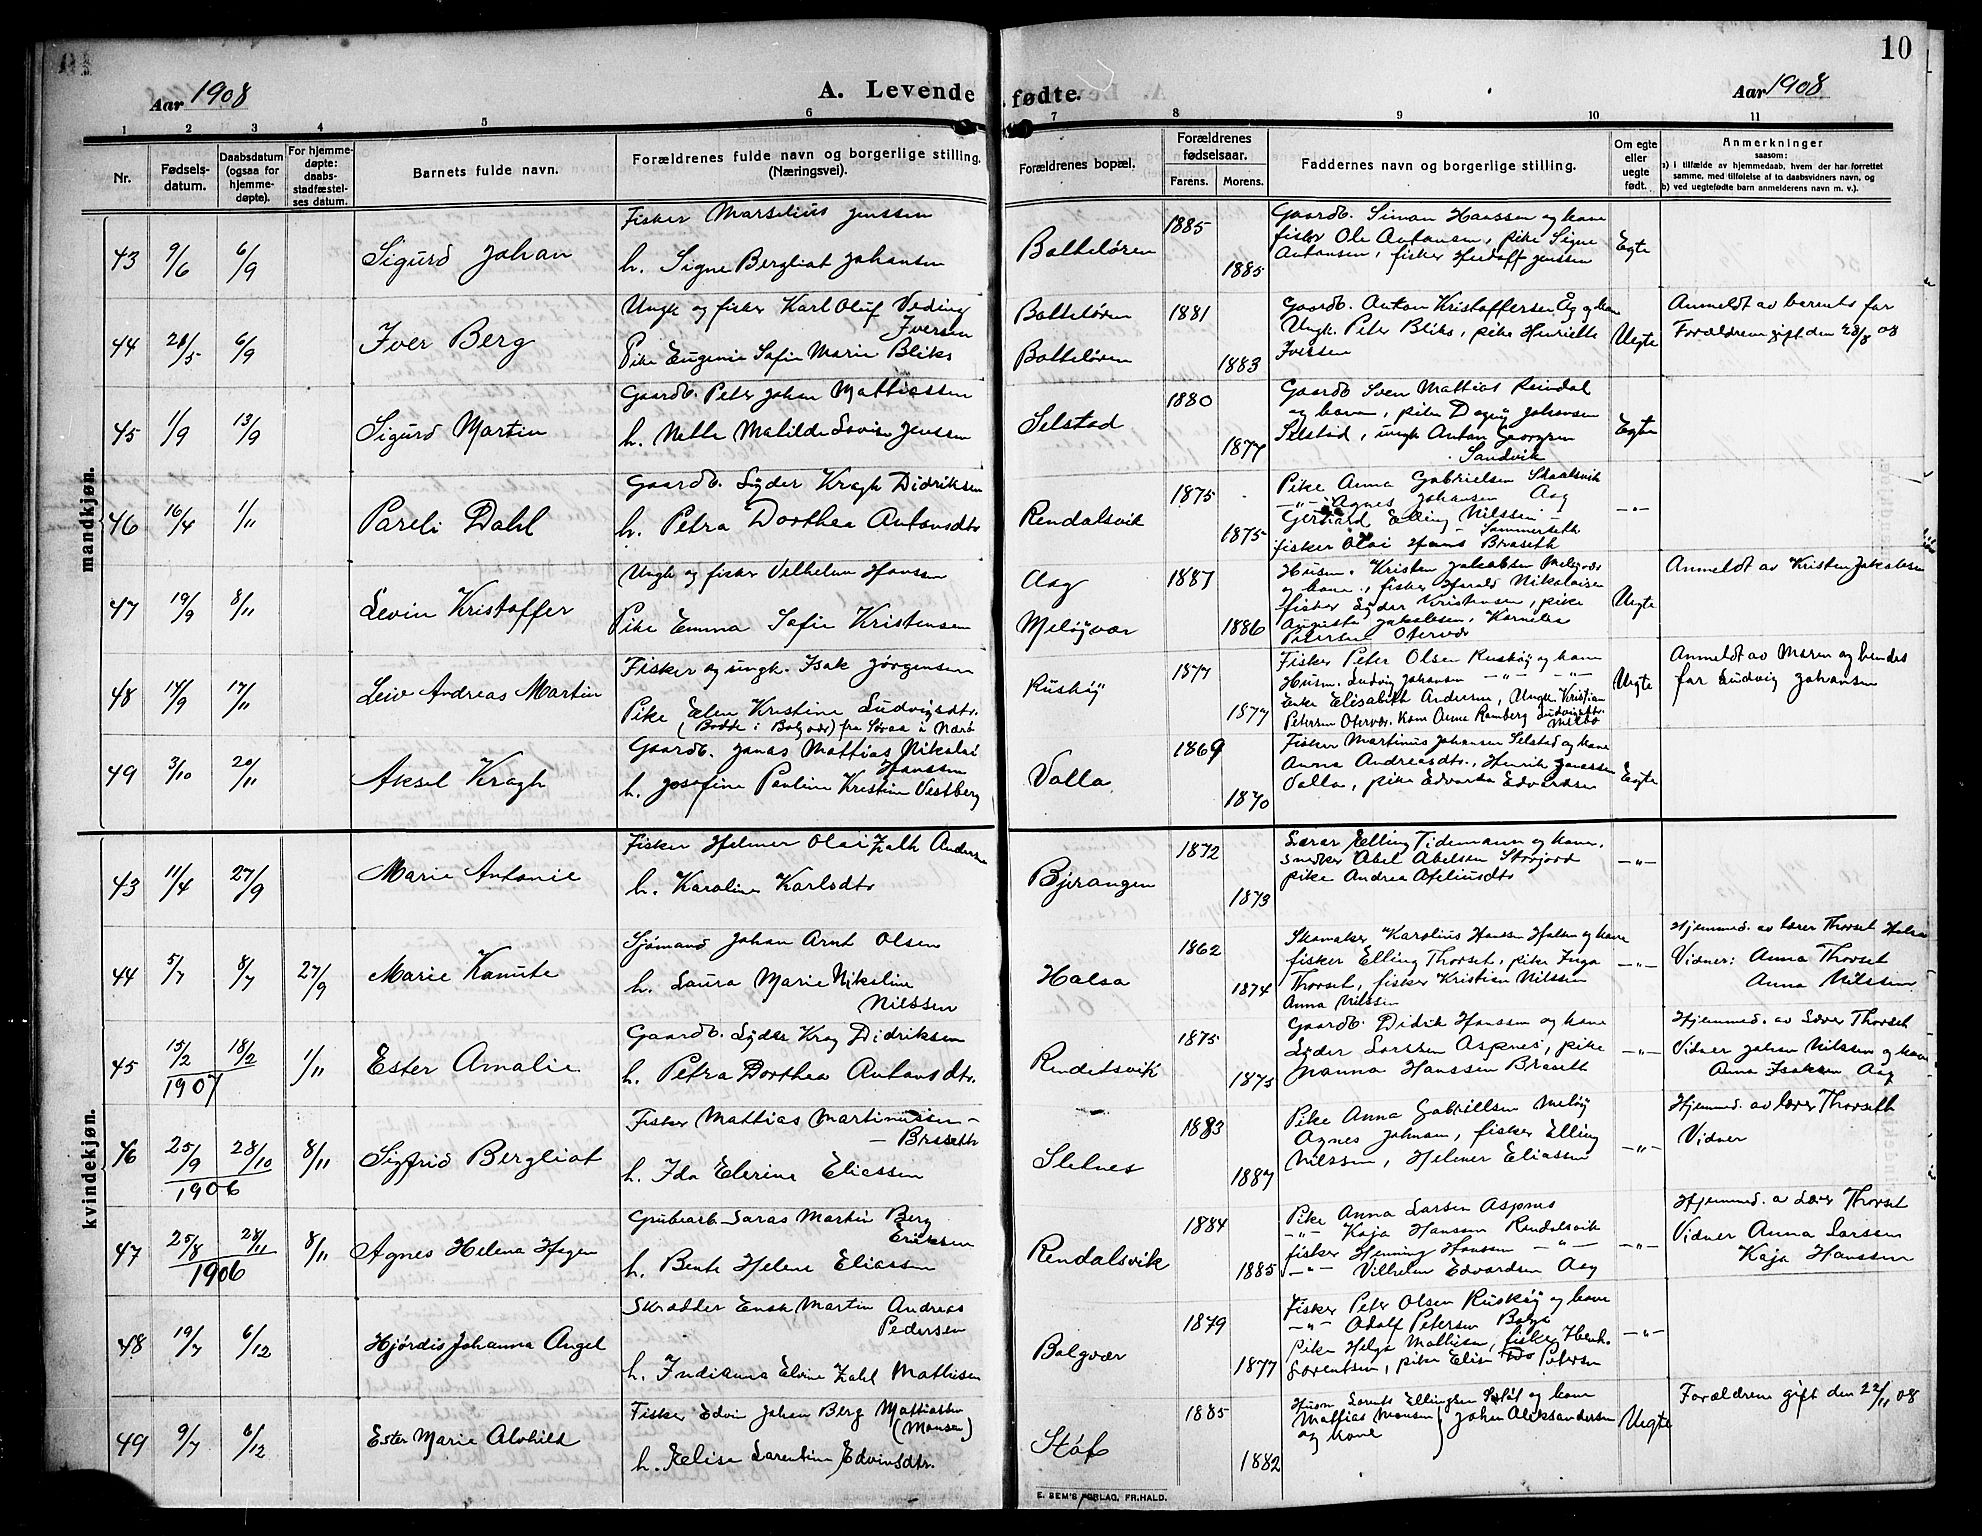 10
Aar 1908
A. Levende fødte.
Aar 1908
1 2 3 4 5 6 7 8 9 10 11
Nr.
Fødsels-
datum.
Daabsdatum
(ogsaa for
hjemme-
døpte).
For hjemme-
døpte:
daabs-
stadfæstel-
ses datum.
Barnets fulde navn.
Forældrenes fulde navn og borgerlige stilling.
(Næringsvei).
Forældrenes bopæl.
Forældrenes
fødselsaar.
Farens. Morens.
Faddernes navn og borgerlige stilling.
Om egte
eller
uegte
født.
Anmerkninger
saasom:
a) i tilfælde av hjemmedaab, hvem der har forrettet
samme, med tilføielse af to daabsvidners navn, og
b) ved uegtefødte barn anmelderens navn m. v.).
mandkjøn.
43 9/6 6/9 Sigurd Johan
Fisker Marselius Jenssen
h. Signe Bergliot Johansen
Bolteløren 1885 1885
Gaardb. Simon Hanssen og kone
fisker Ole Antonsen, pike Signe
Antonsen, fisker Jenssen
Egte
44 28/5 6/9 Iver Berg
Ungk. og fisker Karl Oluf Veding
Iversen
Pike Eugenie Sofie Marie Bliks
Bolteløren
Bolteløren
1881 1883
Gaardb. Anton Kristoffersen Eg og kone
Ungk. Peter Bliks, pike Henriette
Iversen
Uegte
Anmeldt av barnets far
Forældrene gift den 28/8 08
45 1/9 13/9 Sigurd Martin
Gaardb. Peter Johan Mattiassen
h. Nelle Matilde Lovise Jenssen
Selstad 1880 1877
Gaardb. Sven Mattias Reindal
og kone, pike Dagny Johansen
Selstad, ungk Anton Georgsen
Sandvik
Egte
46 16/4 1/11 Pareli Dahl
Gaardb. Lyder Kragh Didriksen
h. Petra Dorthea Antonsdtr
Rendalsvik 1875 1875
Pike Anna Gabrielsen Skaalsvik
-"- Agnes Johansen Aag
Gerhard Elling Nilssen
Sommerseth
fisker Olai Hans Braseth
-"-
47 19/9 8/11 Levin Kristoffer
Ungk og fisker Vilhelm Hansen
Pike Emma Sofie Kristensen
Aag
Meløyvær
1887 1886
Husm. Kristen Jakobsen Meløyvær
og kone, fisker Harald Nikolaisen
fisker Lyder Kristensen, pike
Augusta Jakobsen, Kornelia
Petersen Otervær
Uegte
Anmeldt av Kristen Jakobsen
48 14/9 17/11 Leiv Andreas Martin
Fisker og ungk. Isak Jørgensen
Pike Elen Kristine Ludvigsdtr.
(Bodde i Bolgvær) fra Søraa i Nærø
Ruskøy 1877 1877
Fisker Peter Olsen Ruskøy og kone
Husm. Ludvig Johansen -"- -"-
Enke Elisabeth Andersen, Ungk. Kristian
Petersen Otervær. Kone Anne Ramberg Ludvigsdtr.
Uegte
Anmeldt av Moren og hendes
far Ludvig Johansen
49 3/10 20/11 Aksel Kragh
Gaardb. Jonas Mattias Nikolai
Hanssen
h. Josefine Pauline Kristine Vestberg
Valla 1869 1870
Fisker Martinus Johansen Selstad og kone
Anna Andreasdtr., Henrik Jonassen
Valla, pike Edvarda Edvardsen
Egte
kvindekjøn.
43 11/4 27/9 Marie Antonie
Fisker Helmer Olai Falk Andersen
h. Karoline Karlsdtr
Bjerangen 1872 1873
Lærer Elling Tidemann og kone,
snedker Abel Abelsen Storjord
pike Andrea Ofeliusdtr
-"-
44 5/7 8/7 27/9 Marie Kanute
Sjømand Johan Arnt Olsen
h. Laura Marie Nikoline
Nilssen
Halsa 1862 1874
Skomaker Karolius Hansen Halsa og kone
fisker Elling Thorset, pike Inga
Thorset, fisker Kristian Nilssen
Anna Nilssen
-"-
Hjemmed. av lærer Thorset Halsa
Vidner: Anna Thorset
Anna Nilssen
45 15/2 18/2 1907 1/11 Ester Amalie
Gaardb. Lyder Krag Didriksen
h. Petra Dorthea Antonsdtr.
Rendalsvik 1875 1875
Gaardb. Didrik Hanssen og kone
Lyder Larssen Aspnes, pike
Nanna Hanssen Braseth
-"-
Hjemmed. av Lærer Thorset
Vidner Johan Nilssen og kone
Anna Isaksen Aag
46 25/9 28/10 1906 8/11 Sigfrid Bergliot
Fisker Mattias Martinussen -
- Braseth
h. Ida Elerine Eliassen
Stelnes 1883 1887
Pike Anna Gabrielsen Meløy
Agnes Johnsen, fisker Elling
Nilssen, Helmer Eliassen
-"-
Hjemmed. av lærer Thorseth
Vidner
47 25/8 28/11 1906 8/11 Agnes Helena Hagen
Grubearb. Laras Martin Berg
Eriksen
h. Bente Helene Eliassen
Rendalsvik 1884 1885
Pike Anna Larsen Aspnes
-"- Kaja Hanssen Rendalsvik
fisker Henning Hanssen -"-
-"- Vilhelm Edvardsen Aag
-"-
Hjemmed. av Lærer Thorset
Vidner Anna Larssen
Kaja Hanssen
48 19/7 6/12 Hjørdis Johanna Angel
Skrædder Enok Martin Andreas
Pedersen
h. Indianna Elvine Zahl Mathisen
Bolgvær 1879 1877
Fisker Peter Olsen Ruskøy og kone
-"- Adolf Petersen Bolga
pike Helga Mathisen, fisker Henk.
Lorentsen, pike Elise Petersen
-"-
49 9/7 6/12 Ester Marie Alvhild
Fisker Edvin Johan Berg Mattiassen
(Monsen)
h. Kelise Larentine Edvinsdtr.
Støt 1885 1882
Husm Lorents Ellingsen Støt og kone
Mattias Monsen } Johan Aleksandersen
og kone
Uegte
Forældrene gift den 22/11 08
E. SEM'S FORLAG, FR.HALD.